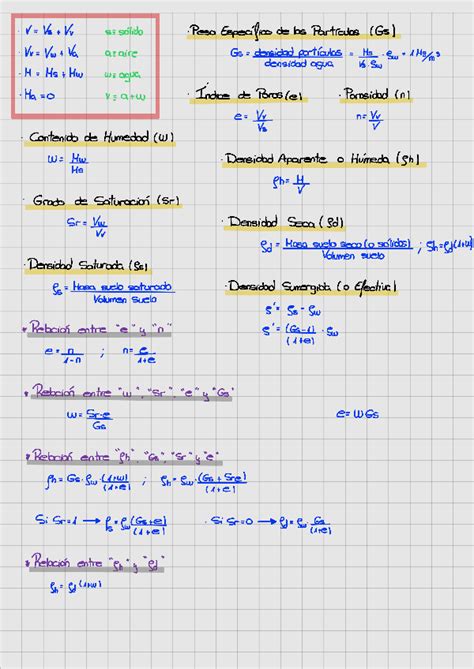 · V = Vs + Vv    s = sólido
· Vv = Vw + Va    a = aire
· M = Ms + Mw    w = agua
· Ma = 0    v = a + w
· Peso Específico de las Partículas (Gs)
Gs = densidad partículas / densidad agua = Ms / Vs · ρw ; ρw = 1 Mg/m³
· Índice de Poros (e)
e = Vv / Vs
· Porosidad (n)
n = Vv / V
· Contenido de Humedad (w)
w = Mw / Ms
· Densidad Aparente o Húmeda (ρh)
ρh = M / V
· Grado de Saturación (Sr)
Sr = Vw / Vv
· Densidad Seca (ρd)
ρd = Masa suelo seco (o sólidos) / Volumen suelo ; ρh = ρd (1+w)
· Densidad Saturada (ρs)
ρs = Masa suelo saturado / Volumen suelo
· Densidad Sumergida (o Efectiva)
ρ' = ρs - ρw
ρ' = (Gs-1) / (1+e) · ρw
* Relación entre "e" y "n"
e = n / 1-n ; n = e / 1+e
* Relación entre "w", "Sr", "e" y "Gs"
w = Sr·e / Gs
e = w Gs
* Relación entre "ρh", "Gs", "Sr" y "e"
ρh = Gs · ρw · (1+w) / (1+e) ; ρh = ρw · (Gs + Sr e) / (1+e)
· Si Sr = 1 → ρs = ρw (Gs+e) / (1+e)
· Si Sr = 0 → ρd = ρw · Gs / (1+e)
* Relación entre "ρh" y "ρd"
ρh = ρd (1+w)